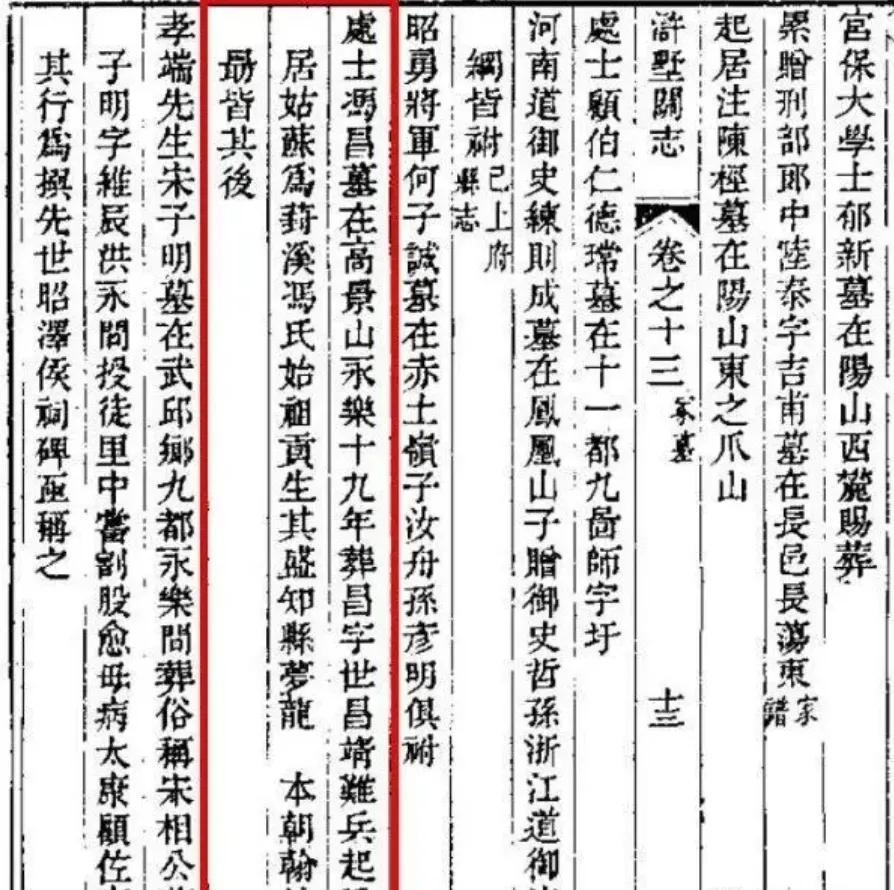 宮保大學士郁新墓在陽山西麓賜葬
累贈刑部郎中陸泰字吉甫墓在長邑長蕩東家譜
起居注陳桱墓在陽山東之爪山
滸墅關志 卷之十三 冢墓 十三
處士顧伯仁德瑺墓在十一都九啚師字圩
河南道御史練則成墓在鳳凰山子贈御史哲孫浙江道御
綱皆祔已上府縣志
昭勇將軍何子誠墓在赤土嶺子汝舟孫彥明俱祔
處士馮昌墓在高景山永樂十九年葬昌字世昌靖難兵起
居姑蘇爲葑溪馮氏始祖貢生其盛知縣夢龍 本朝翰
勗皆其後
孝端先生宋子明墓在武邱鄉九都永樂間葬俗稱宋相公
子明字維辰洪永間授徒里中嘗割股愈母病太康顧佐
其行爲撰先世昭澤侯祠碑亟稱之